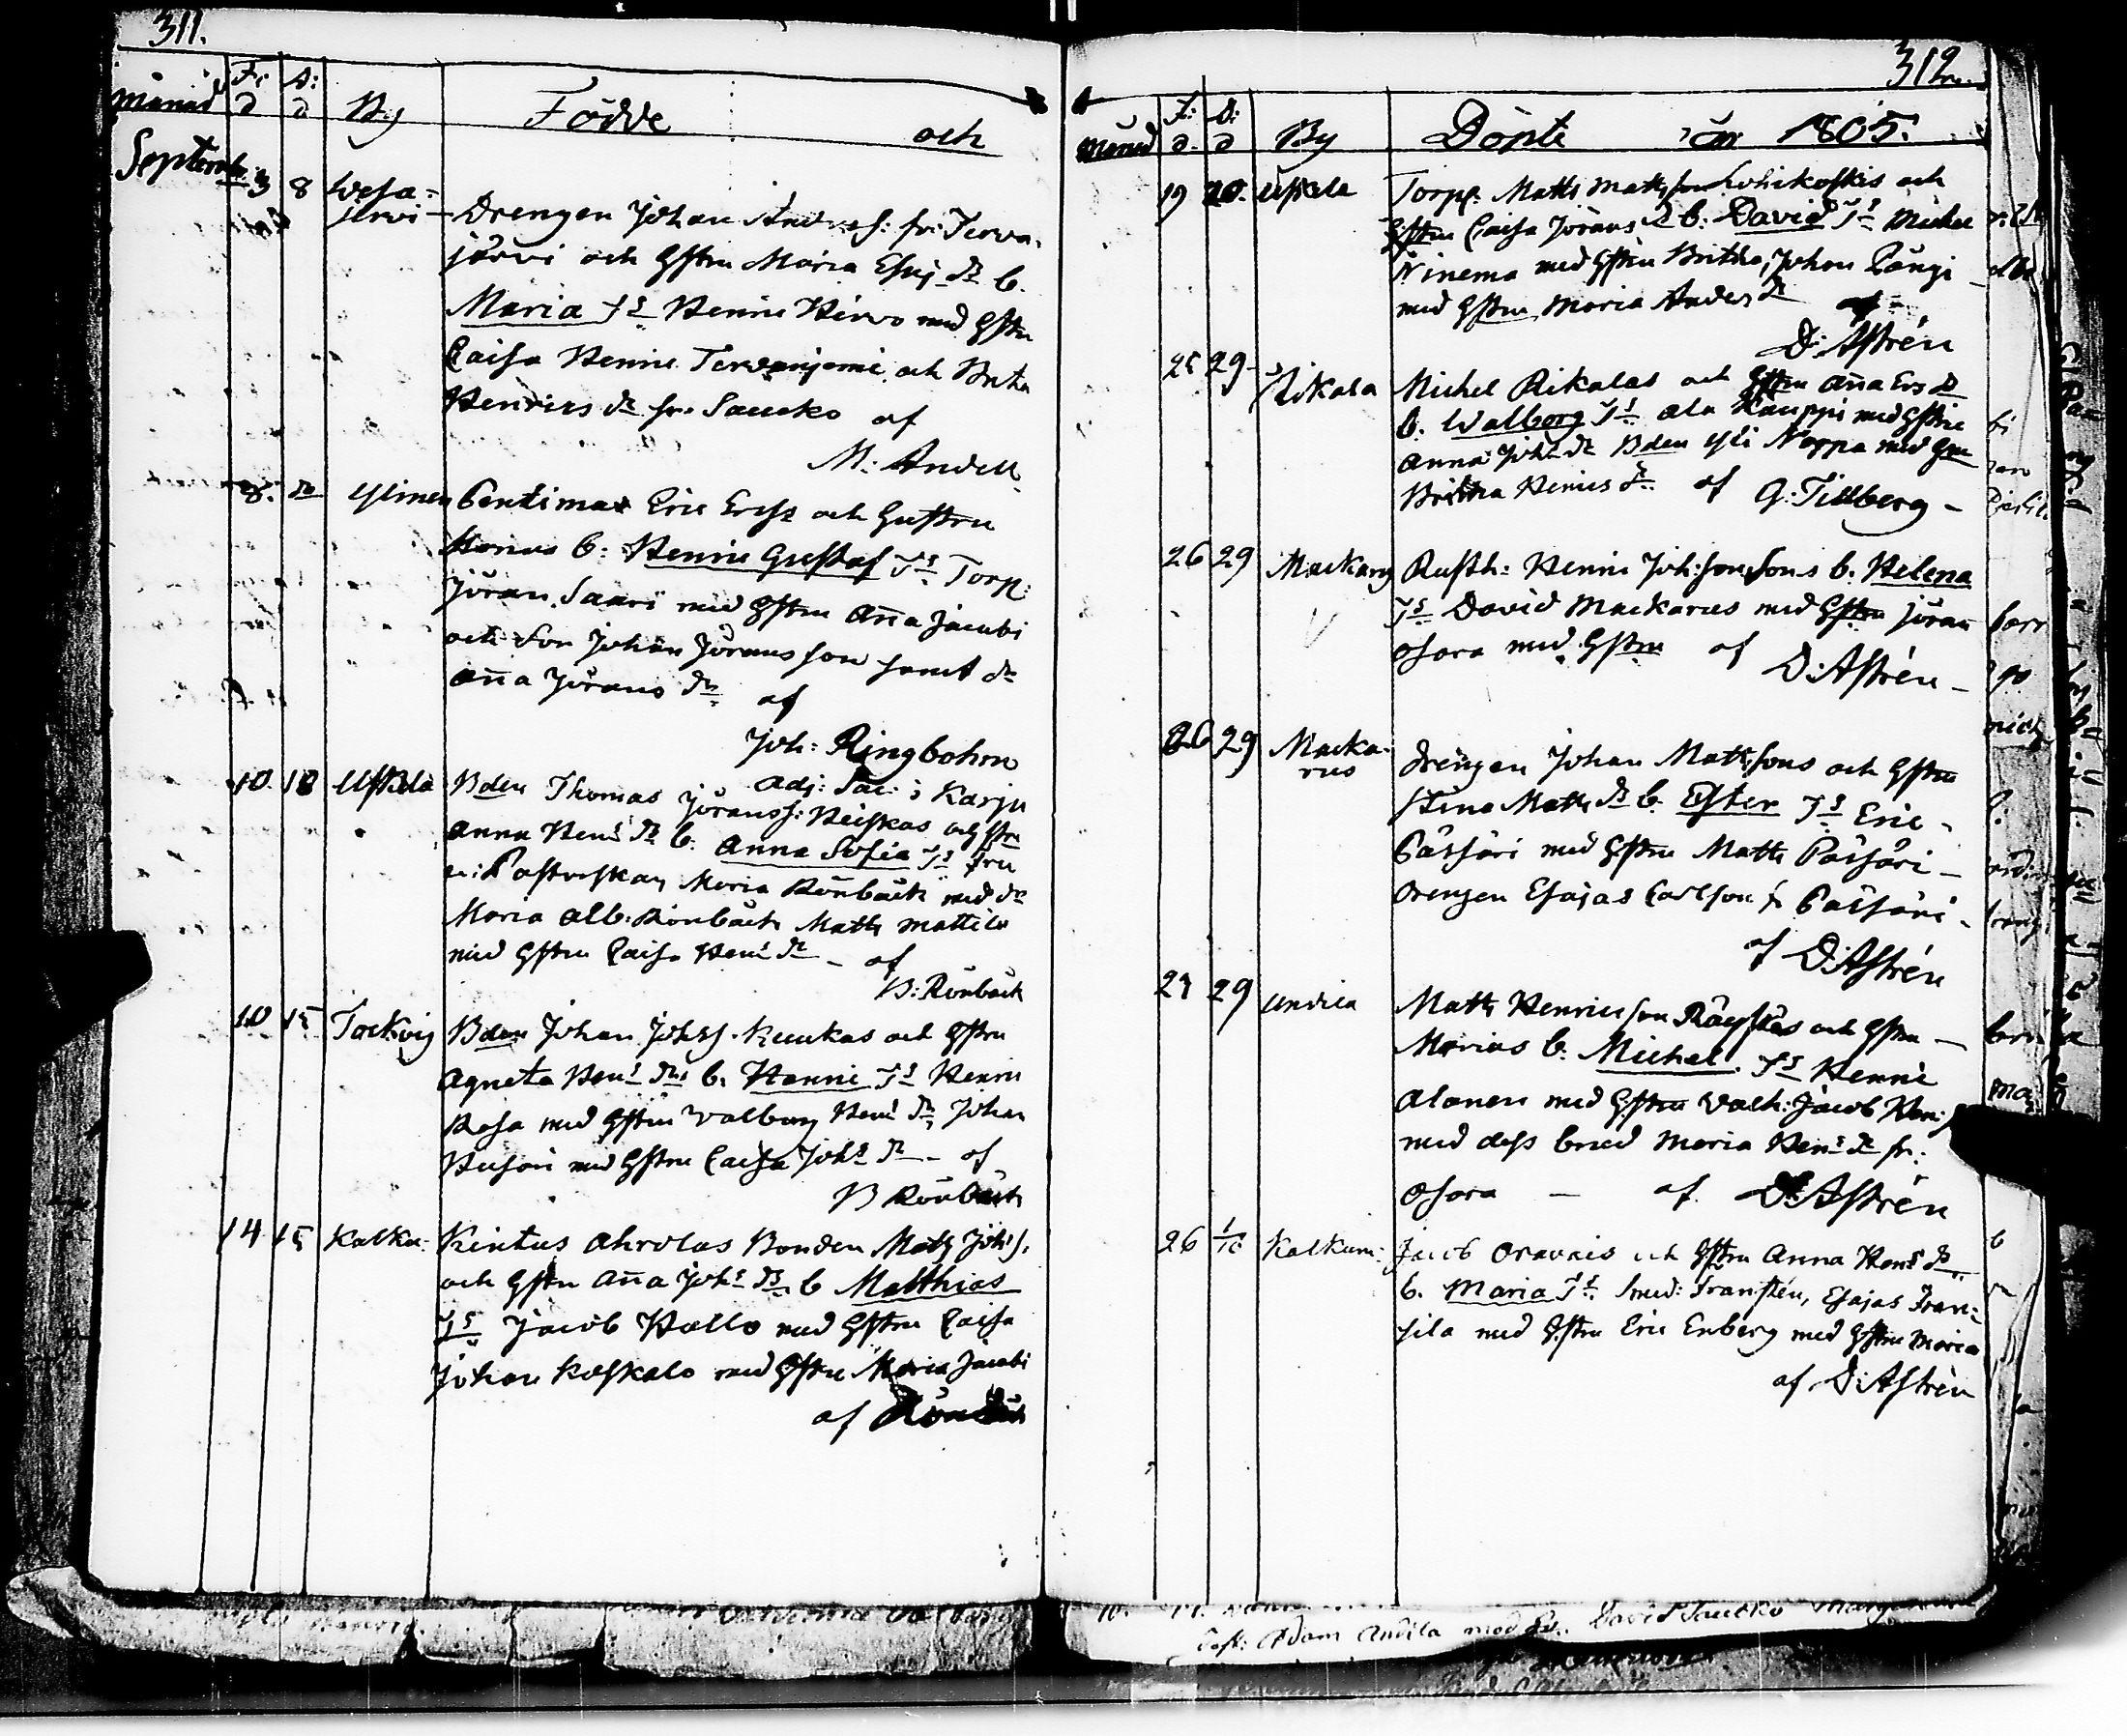 311.
månad F: d D: d By Födde och
September 3 8 Wesa=
järvi – Drengen Johan Anders: fr: Terva-
järvi och hstru Maria Esaj dr b.
Maria Fs Henric Hirvo med hstru
Caisa Henric Tervaniemi och Brita
Henrics dr fr. Saucko af
M: Andell
8. dr Ylinen Pentimas Eric Ersss och hustru
Marias b: Henric Gustaf Fs Torp:
Jöran Saari med hstru Anna Jacobi
och Son Johan Jöransson samt dr
Anna Jörans dr af
Joh: Ringbohm
Adj: Sac: i Karju
10. 10 Ufskila Bden Thomas Jöranss: Heiskas och hstru
Anna Hens dr b. Anna Sofia Fs Fru
Pastorskan Maria Rönbäck med dr
Maria Alb: Rönbäck Matts Mattila
med hstru Caisa Hens dr – af
B: Rönbäck
10 15 Torkvij Bden Johan Johss. Kuukas och hstru
Agneta Hens drs b. Henric Fs Henric
Rosa med hstru Walborg Hens dr, Johan
Heisari med hstru Caisa Johs dr – af
B Rönbäck
14 15 Kalku: Kintus Ahrolas Bonden Matts Johs s.
och hstru Anna Johs drs b Matthias
Fs Jacob Hallo med hstru Caisa
Johan Koskalo med hstru Maria Jacobi
af Rönbäck
312
månad F: d. D: d By Döpte år 1805.
19 20. Ufskila Torp. Matts Mattsson Lohikoskis och
hstru Caisa Jörans d b. David Fs Michel
Ninema med hstru Britha, Johan Pångi –
med hstru Maria Anders dr af –
D: Astrén
25 29 – Rikala Michel Rikalas och hstru Anna Ers dr
b. Walborg Fs Ala Kauppi med hstru
Anna Johs dr Bden Yli Noppa med hru
Britha Henics dr. af G: Tillberg –
26 29 Mackarus Rusth: Henric Joh:son Sons b. Helena
Fs David Mackarus med hstru Jöran
Osara med hstru af
D: Astrén –
26 29 Macka-
rus Drengen Johan Mattssons och hstru
Stina Matts dr b. Ester Fs Eric –
Påssari med hstru Matts Påssari –
Drengen Esajas Carlson fr Påssari –
af D: Astrén
29 Andila Matts Henricsson Räyskäs och hstru –
Marias b. Michel. Fs Henric
Alanen med hstru Walb: Jacob Hen: s
med dess brud Maria Hens dr fr:
Osara – af. D: Astrén
26 1/10 Kalkun: Jacob Oravais och hstru Anna Hens dr
b. Maria Fs Smed: Fransten, Esajas Fran=
sila med hstru Eric Enberg med hstru Maria
af D: Astrén
Adam Andila med David Saucko